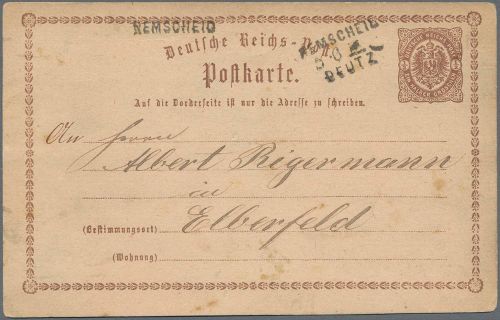 REMSCHEID
REMSCHEID
DEUTZ
Deutsche Reichs-Post.
Postkarte.
Auf die Vorderseite ist nur die Adresse zu schreiben.
An Herrn
Albert Rigermann
in
(Bestimmungsort) Elberfeld
(Wohnung)